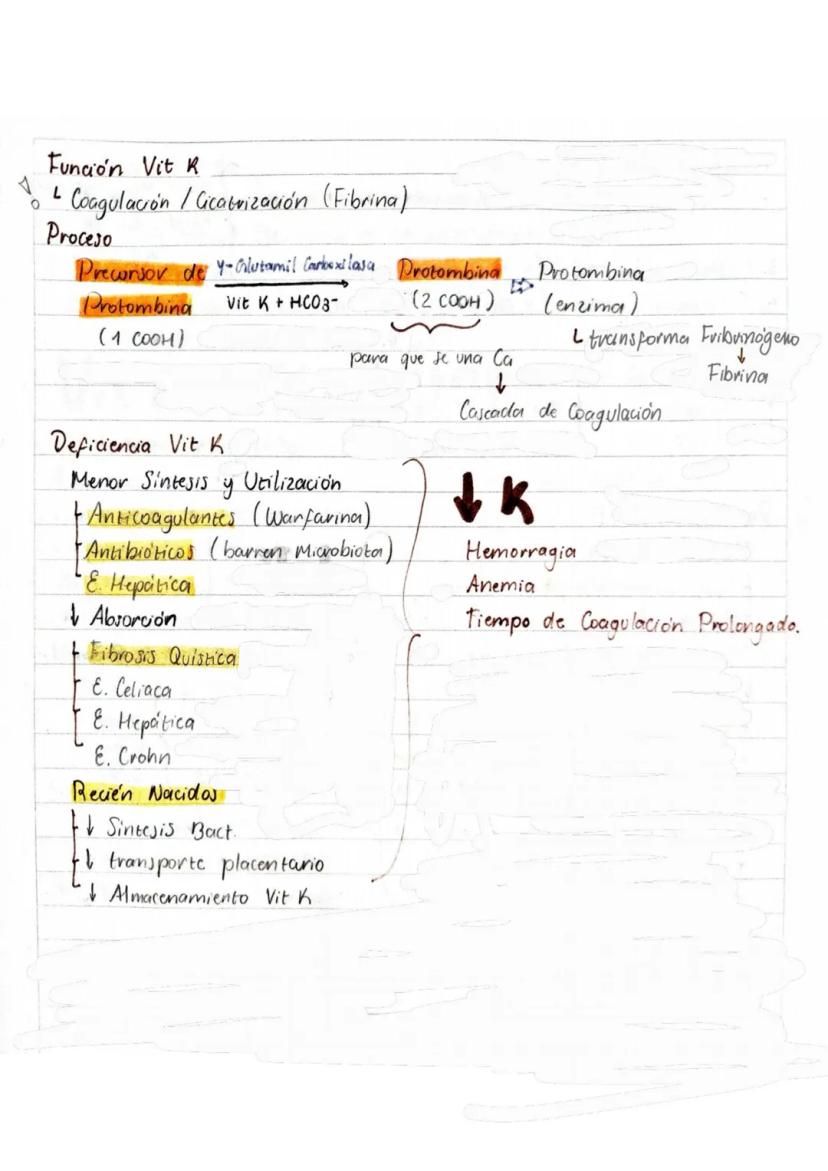 Función Vit K
└ Coagulación / Cicatrización (Fibrina)
Proceso
Precursor de γ-Glutamil Carboxilasa Protombina ⇨ Protombina
Protombina Vit K + HCO3- (2 COOH) (enzima)
(1 COOH) └ transforma Fribrinógeno
para que se una Ca ↓
↓ Fibrina
Cascada de Coagulación
Deficiencia Vit K
Menor Síntesis y Utilización
Anticoagulantes (Warfarina)
Antibióticos (barren Microbiota)
E. Hepática
↓ Absorción
Fibrosis Quística
E. Celiaca
E. Hepática
E. Crohn
Recién Nacidos
↓ Síntesis Bact.
↓ transporte placentario
↓ Almacenamiento Vit K
↓ K
Hemorragia
Anemia
Tiempo de Coagulación Prolongado.